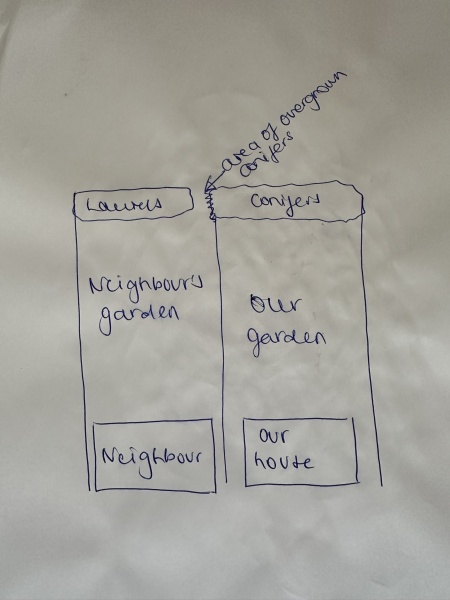 area of overgrown
conifers
Laurels
Conifers
Neighbour's
garden
Our
garden
Neighbour
our
house